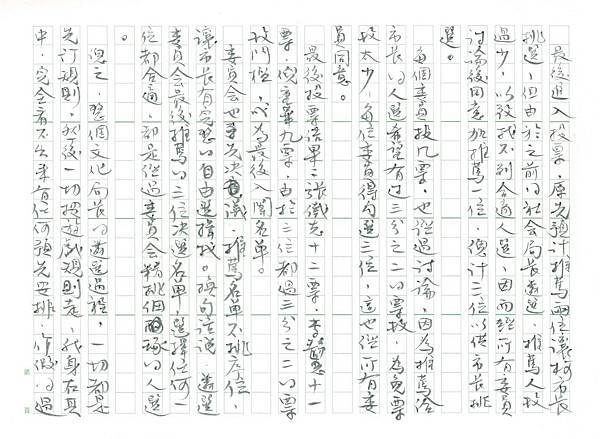 最後進入投票，原先預計推薦兩位讓柯市長
挑選，但由於之前的社會局長遴選，推薦人數
過少，以致找不到合適人選，因而經所有委員
討論後同意加推薦一位，總計三位以供市長挑
選。
每個委員投幾票，也經過討論，因為推薦給
市長的人選希望有過三分之二的票數，為免票
數太少，每位委員得勾選三位，這也經所有委
員同意。
最後投票結果：張鐵志十二票，李 十一
票，倪重華九票，由於三位都過三分之二的票
數門檻，成為最後入圍名單。
委員會也事先決議，推薦名單不排序位，
讓市長有完整的自由選擇權。換句話說，遴選
委員會最後推薦的三位決選名單，選擇任何一
位都合適，都是經過委員會精挑細琢的人選
。
總之，整個文化局長的遴選過程，一切都是
先訂規則，然後一切按遊戲規則走，我身在其
中，完全看不出來有任何預先安排、作假的過